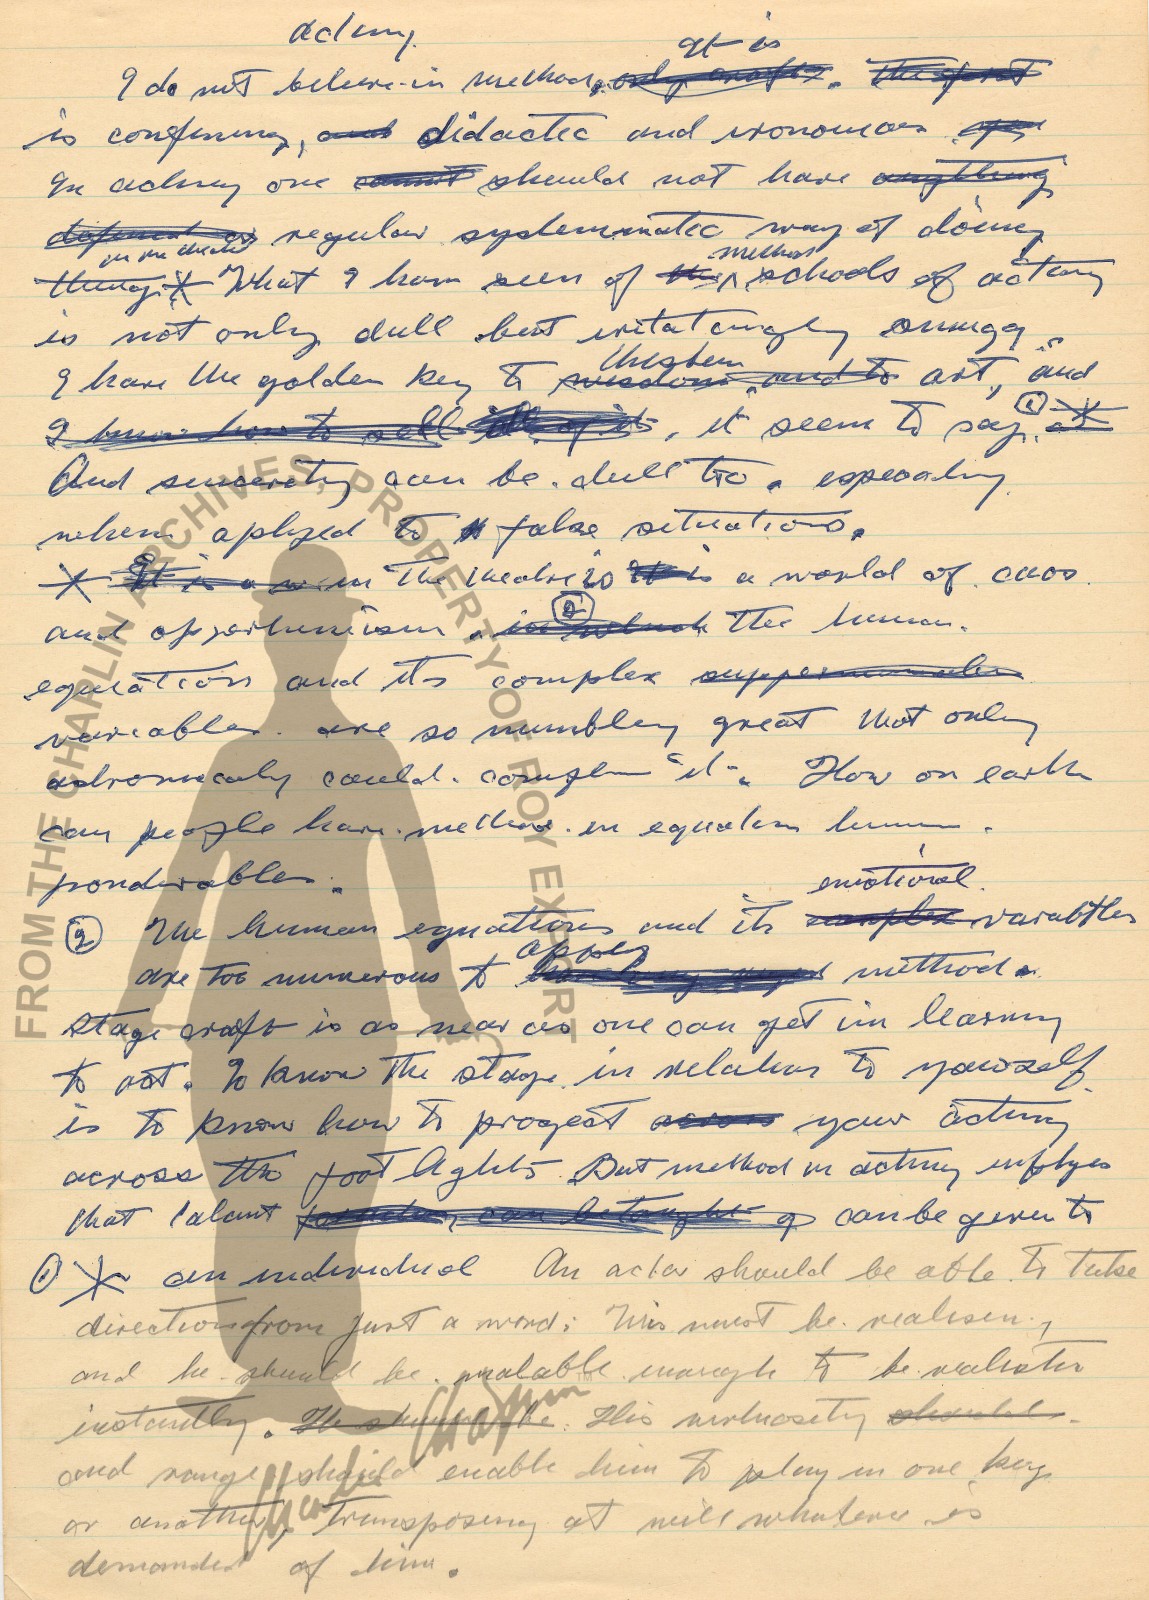 acting
It is
I do not believe in method, only crafts. The sp
is confining, and didactic and eronomous
In acting one cannot should not have anything
defined or regular systemmatic way of doing
in the theatre
things * What I have seen of the method schools of acting
is not only dull but iritatingly smugg
theatre
I have the golden key to wisdom and to art, "and
I know how to sell it, it seem to say. ① *
And sincerity can be dull too, especialy
when aplyed to false situations.
* It is a in The theatre is It is a world of caos
and opportunism. ② in which The human
equation and its complex
variables are so numbling great that only
astronomicaly could complem it. How on earth
can people have method in equations human
ponderables.
② The human equations and its complex emotional variables
are too numerous to apply method.
Stage craft is as near as one can get in learning
to act. To know the stage in relation to yourself
is to know how to progect across your acting
across the foot lights But method in acting implyes
that talent can be taught can be given to
① * an individual An actor should be able to take
direction from just a word: This must be realisen,
and he should be malable enough to be realistic
instantly. He should be His virtuosity should
and range should enable him to play in one key
or another, transposing at will whatever is
demanded of him.
FROM THE CHAPLIN ARCHIVES, PROPERTY OF ROY EXPORT
Charlie Chaplin
TM